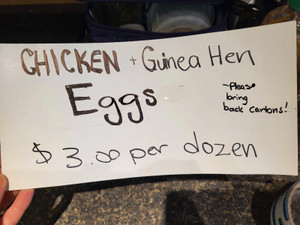 CHICKEN + Guinea Hen
Eggs
- Please
bring
back cartons!
$ 3.00 per dozen